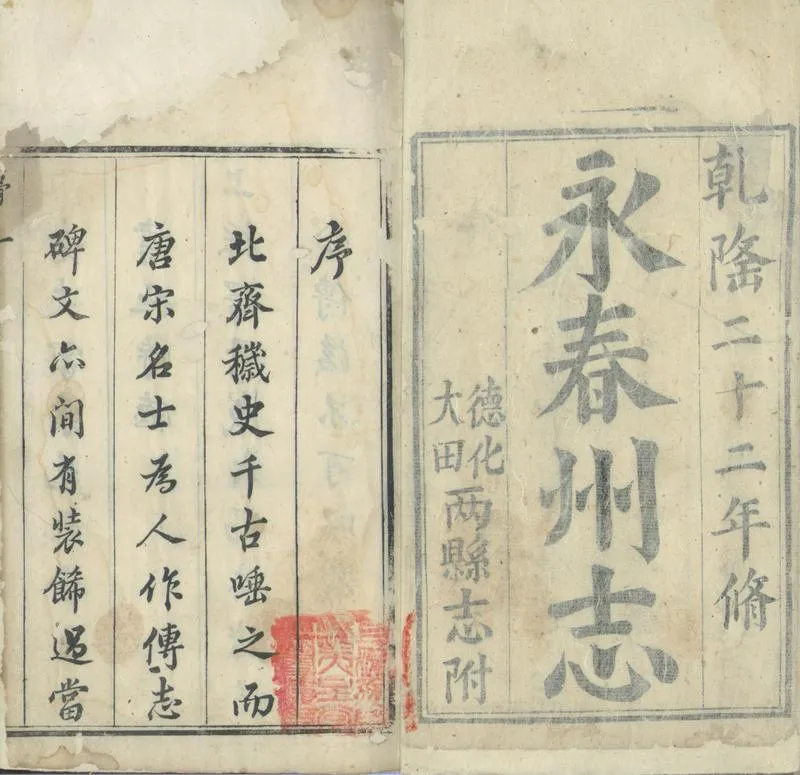 乾隆二十二年脩
永春州志
德化
大田
两縣志附
序
北齊穢史千古唾之而
唐宋名士為人作傳志
碑文亦間有裝餙過當